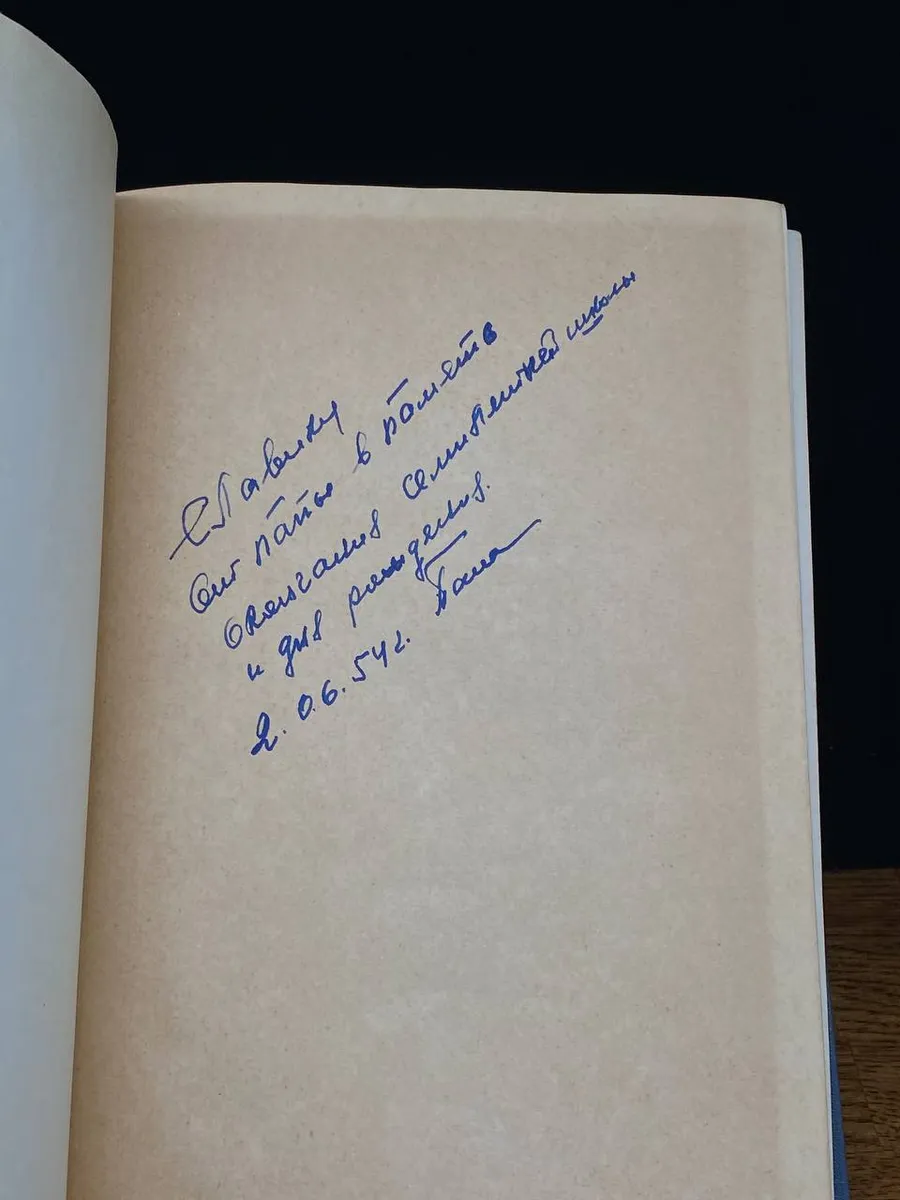 Славику
от папы в память
окончания семилетней школы
и дня рождения.
2. 06. 54 г. Папа